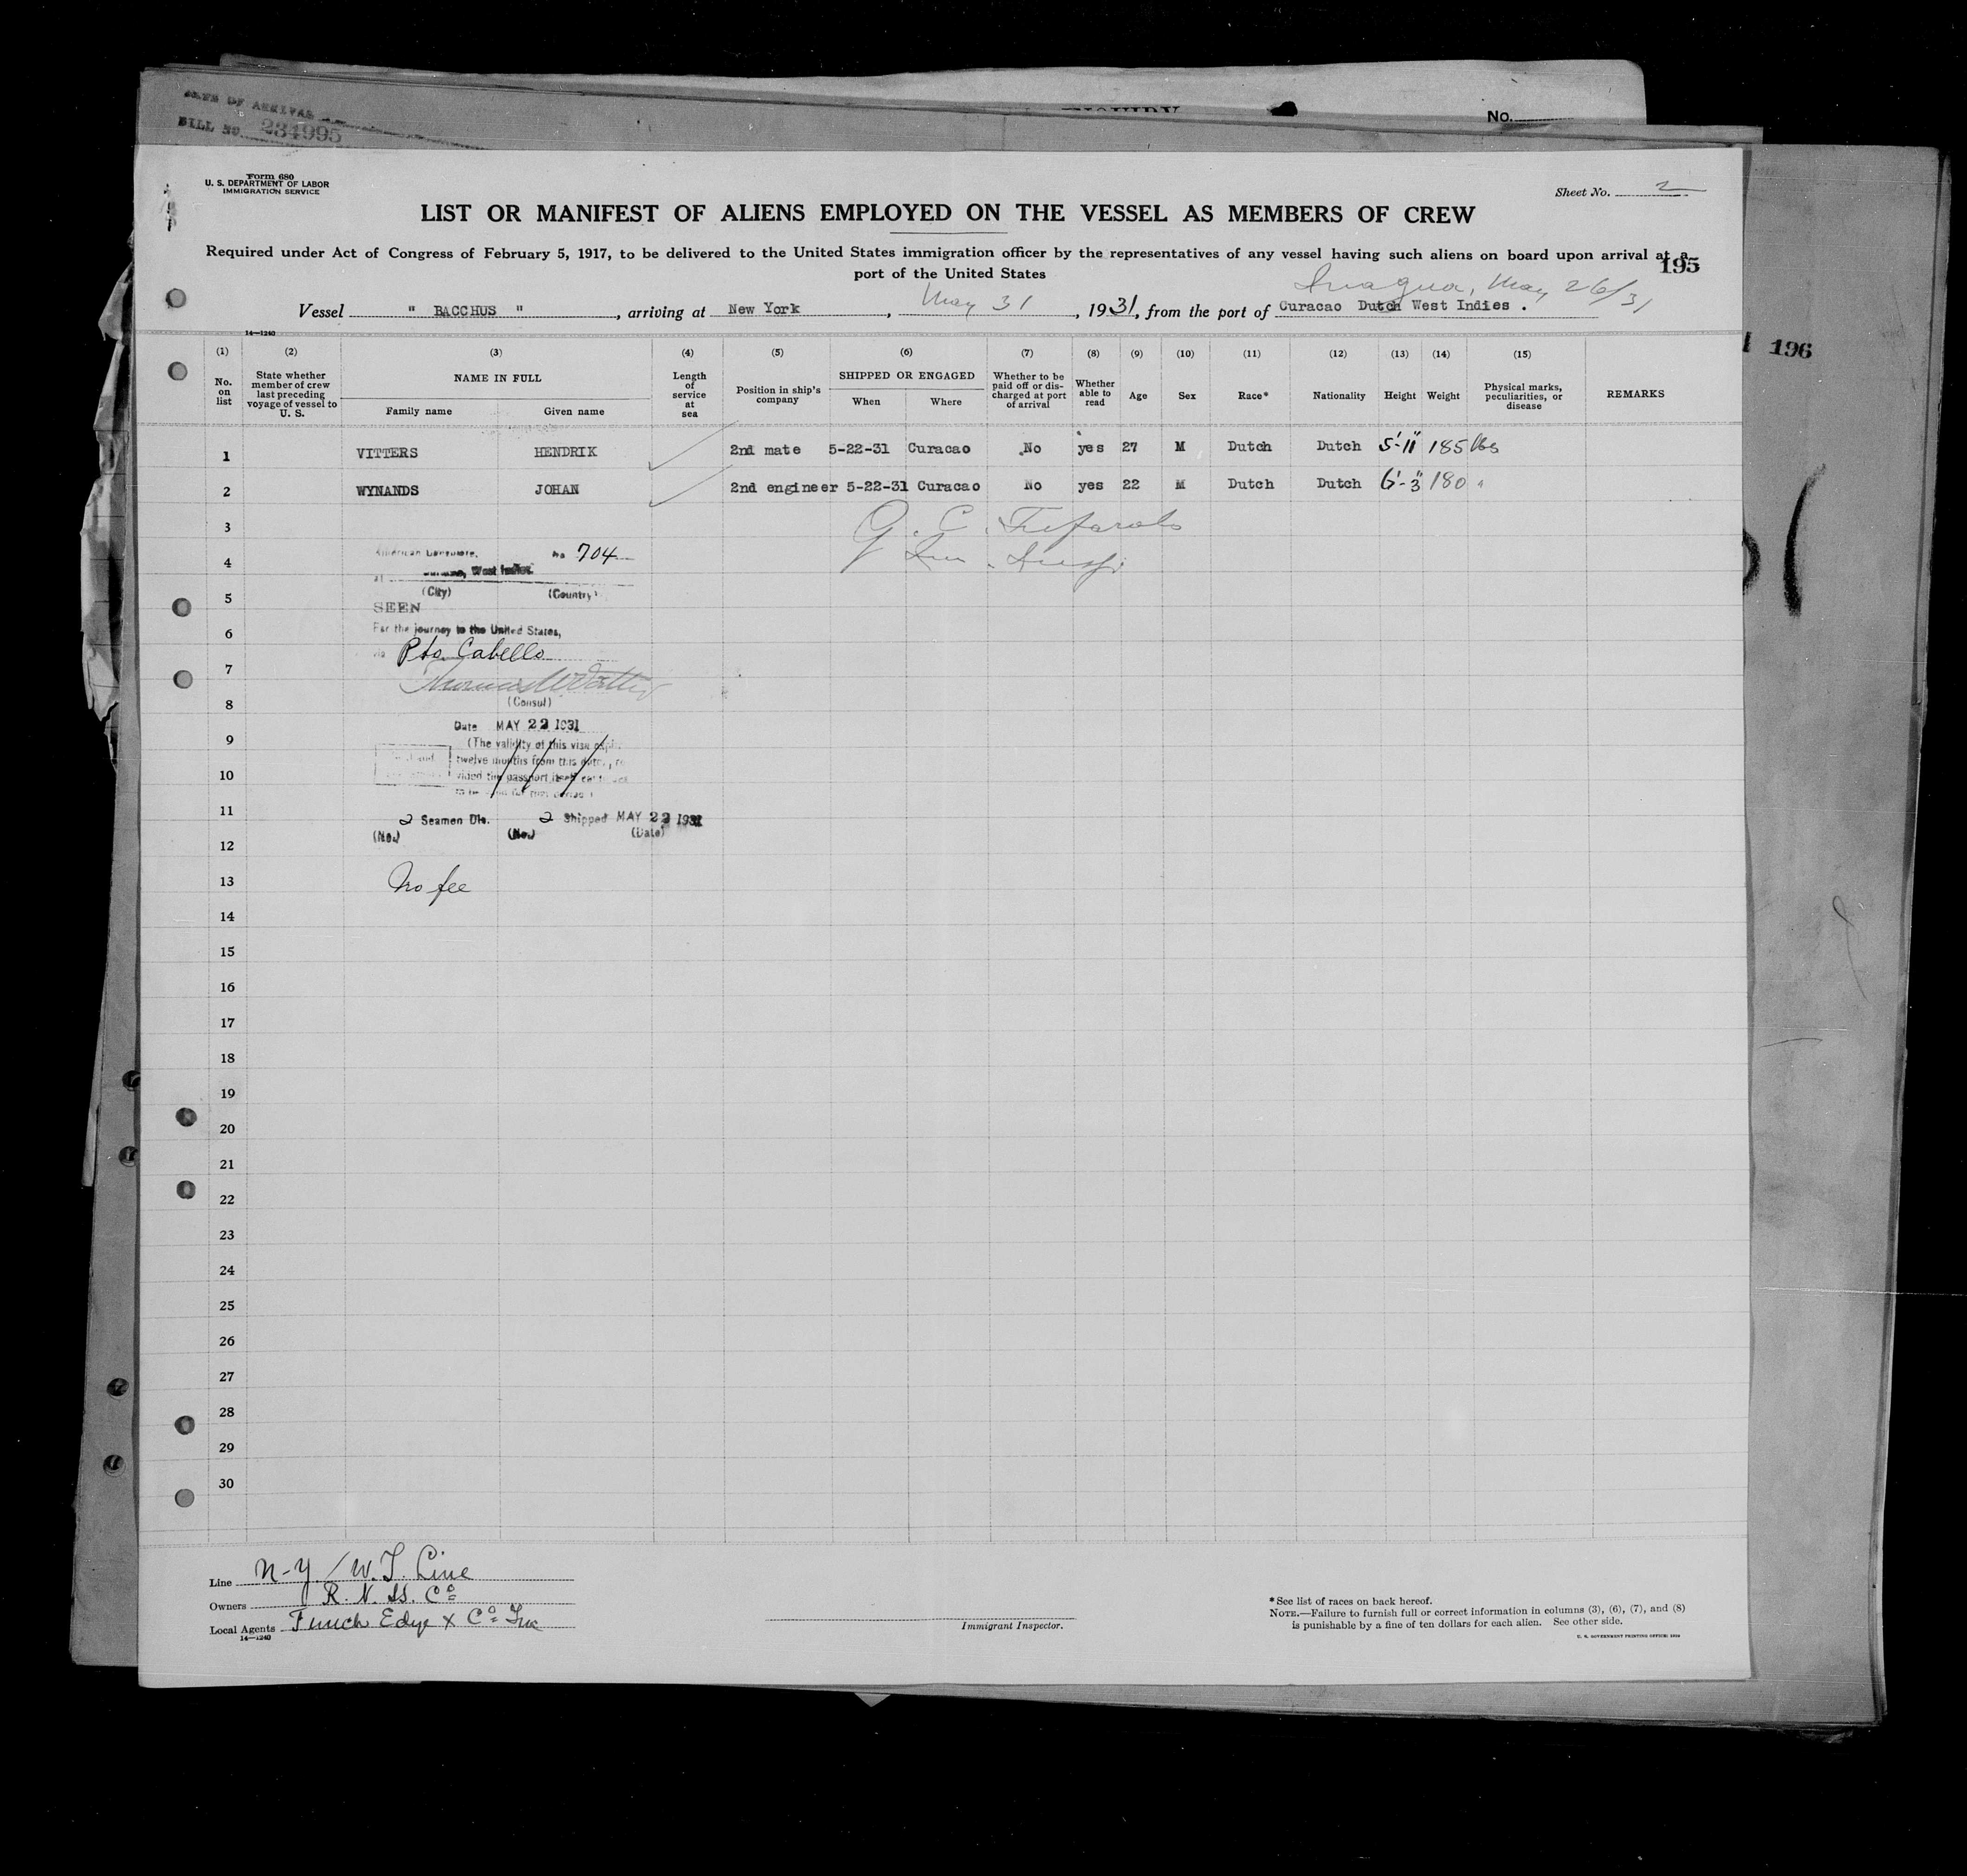 DATE OF ARRIVAL
BILL NO. 234995
No.
Form 680
U. S. DEPARTMENT OF LABOR
IMMIGRATION SERVICE
Sheet No. 2
LIST OR MANIFEST OF ALIENS EMPLOYED ON THE VESSEL AS MEMBERS OF CREW
Required under Act of Congress of February 5, 1917, to be delivered to the United States immigration officer by the representatives of any vessel having such aliens on board upon arrival at a
port of the United States
195
Inagua, May 26/31
Vessel " BACCHUS ", arriving at New York, May 31, 1931, from the port of Curacao Dutch West Indies .
14—1240
196
(1) (2) (3) (4) (5) (6) (7) (8) (9) (10) (11) (12) (13) (14) (15)
No. on list
State whether member of crew last preceding voyage of vessel to U. S.
NAME IN FULL
Family name Given name
Length of service at sea
Position in ship's company
SHIPPED OR ENGAGED
When Where
Whether to be paid off or discharged at port of arrival
Whether able to read
Age
Sex
Race*
Nationality
Height
Weight
Physical marks, peculiarities, or disease
REMARKS
1 VITTERS HENDRIK 2nd mate 5-22-31 Curacao No yes 27 M Dutch Dutch 5'-11" 185 lbs
2 WYNANDS JOHAN 2nd engineer 5-22-31 Curacao No yes 22 M Dutch Dutch 6'-3" 180 "
3
4
American Consulate, No 704
at West Indies
5
(City) (Country)
SEEN
6
For the journey to the United States,
via Pto Cabello
7
8
(Consul)
Date MAY 22 1931
9
(The validity of this visa
twelve months from this date,
10
vided the passport itself
11
2 Seamen Dis. 2 Shipped MAY 22 1931
(No.) (No.) (Date)
12
13
No fee
14
15
16
17
18
19
20
21
22
23
24
25
26
27
28
29
30
Line N-Y / W.I. Line
Owners R. N. SS. Co
Local Agents Funch Edye & Co Inc
14—1240
Immigrant Inspector.
* See list of races on back hereof.
NOTE.—Failure to furnish full or correct information in columns (3), (6), (7), and (8)
is punishable by a fine of ten dollars for each alien. See other side.